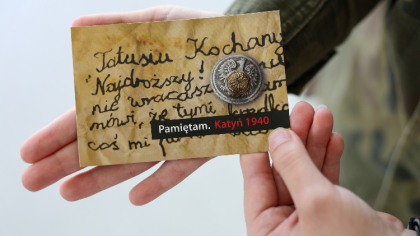 Tatusiu Kochany
"Najdroższy!
nie wracasz
mówi, że tymi
Pamiętam. Katyń 1940
coś mi